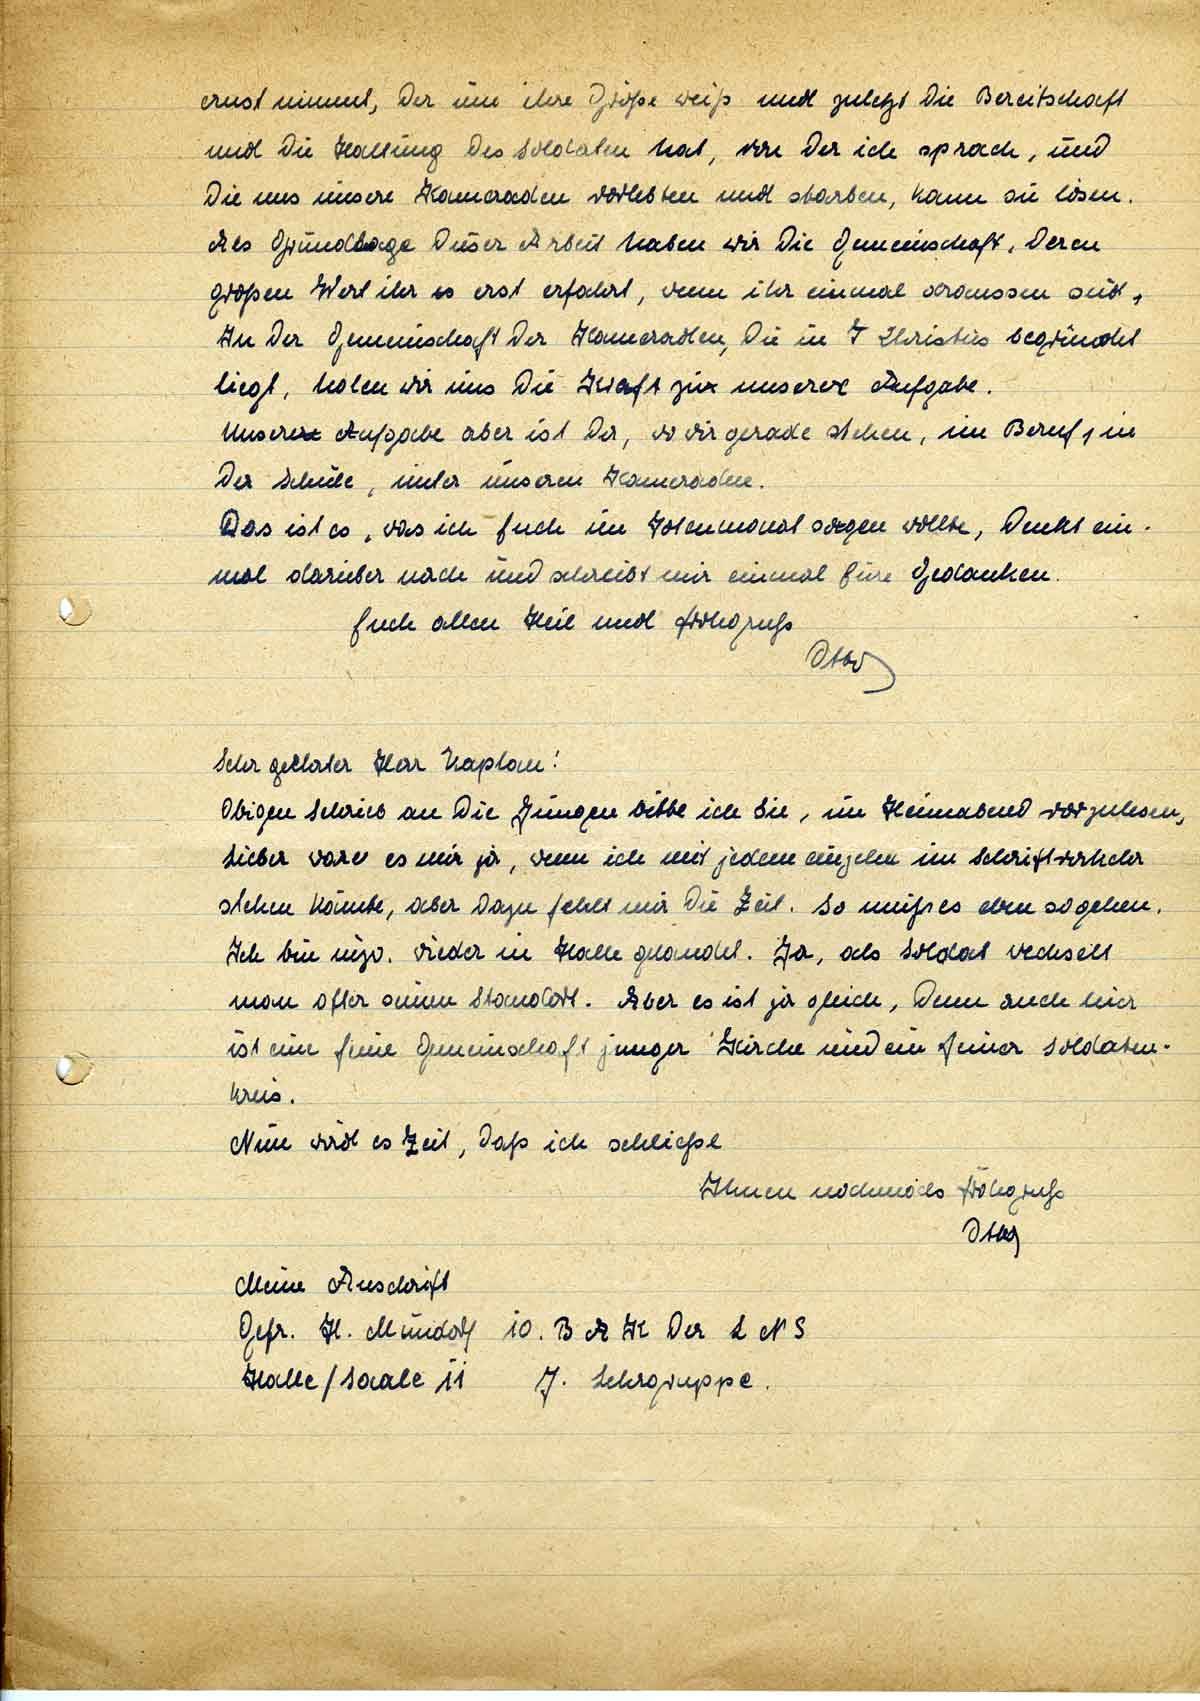 ernst nimmt, der um ihre Größe weiß und zuletzt die Bereitschaft
und die Haltung des Soldaten hat, von der ich sprach, und
die uns unsere Kameraden vorlebten und starben, kann sie lösen.
Als Grundlage dieser Arbeit haben wir die Gemeinschaft, deren
großen Wert ihr es erst erfahrt, wenn ihr einmal draussen seid,
In der Gemeinschaft der Kameraden, die in J Christus begründet
liegt, holen wir uns die Kraft zur unserer Aufgabe.
Unsere Aufgabe aber ist der, wo wir gerade stehen, im Beruf, in
der Schule, unter unseren Kameraden.
Das ist es, was ich Euch im Totenmonat sagen wollte, Denkt ein-
mal darüber nach und schreibt mir einmal Eure Gedanken.
Euch allen Heil und Frohgruß
Otto
Sehr geehrter Herr Kaplan!
Obigen Schrieb an die Jungen bitte ich Sie, im Heimabend vorzulesen,
Lieber wäre es mir ja, wenn ich mit jedem einzeln im Schriftverkehr
stehen könnte, aber dazu fehlt mir die Zeit. So muß es eben so gehen.
Ich bin inzw. wieder in Halle gelandet. Ja, als Soldat wechselt
man öfter seinen Standort. Aber es ist ja gleich, denn auch hier
ist eine feine Gemeinschaft junger Kirche und ein feiner Soldaten-
kreis.
Nun wird es Zeit, daß ich schließe
Ihnen nochmals Frohgruß
Otto
Meine Anschrift
Gefr. H. Mundorf 10. B A K der L N S
Halle/Saale 11 7. Lehrgruppe.